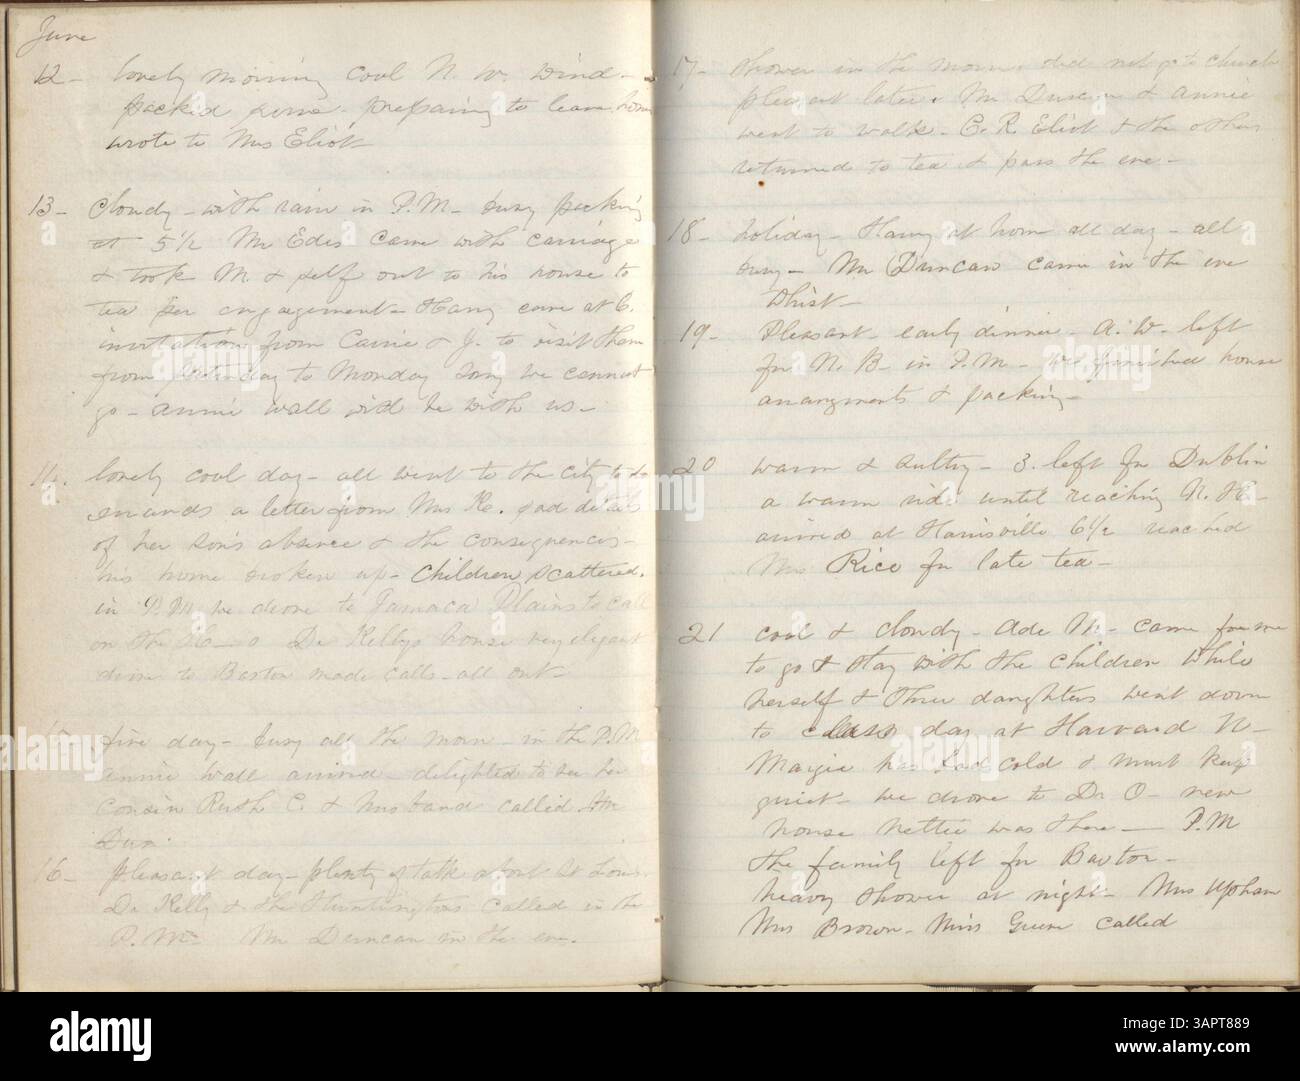 June
12 - lovely morning cool N. W. wind -
packed some - preparing to leave home
wrote to Mrs Eliot
13 - Cloudy - with rain in P.M - busy packing
at 5 1/2 Mr Edes came with carriage
& took M. & self out to his house to
tea per engagement - Harry came at 6.
invitation from Carrie & J. to visit them
from Saturday to Monday sorry we cannot
go - Annie Wall will be with us -
14. lovely cool day - all went to the city to do
errands a letter from Mrs K. sad details
of her son's absence & the consequences -
his home broken up - Children scattered.
in P.M. we drove to Jamaca Plains to call
on the Dr Kellys house very elegant
drove to Boston made calls - all out -
15 fine day - busy all the morn - in the P.M
Annie Wall arrived - delighted to see her
cousin Ruth C. & husband called Mr
Dun.
16 - pleasant day - plenty of talk about St Louis
Dr Kelly & the Huntingtons called in the
P.M - Mr Duncan in the eve.
17 - shower in the morn. did not go to church
pleasant later. Mr Duncan & Annie
went to walk - C. R. Eliot & the others
returned to tea & pass the eve -
18 - holiday - Harry at home all day - all
busy - Mr Duncan came in the eve
Whist -
19 - Pleasant - early dinner - A. W. left
for N. B. in P.M - we finished house
arrangments & packing -
20 warm & sultry - 3. left for Dublin
a warm ride until reaching N. H -
arrived at Harrisville 6 1/2 reached
Mrs Rice for late tea -
21 cool & cloudy - Ade M - came for me
to go & stay with the children while
herself & three daughters went down
to class day at Harvard U -
Margie has bad cold & must keep
quiet - we drove to Dr O - new
house Nettie was there - P.M
the family left for Boston -
heavy shower at night - Mrs Upham
Mrs Brown - Miss Greene called
alamy
Image ID: 3APT889
www.alamy.com